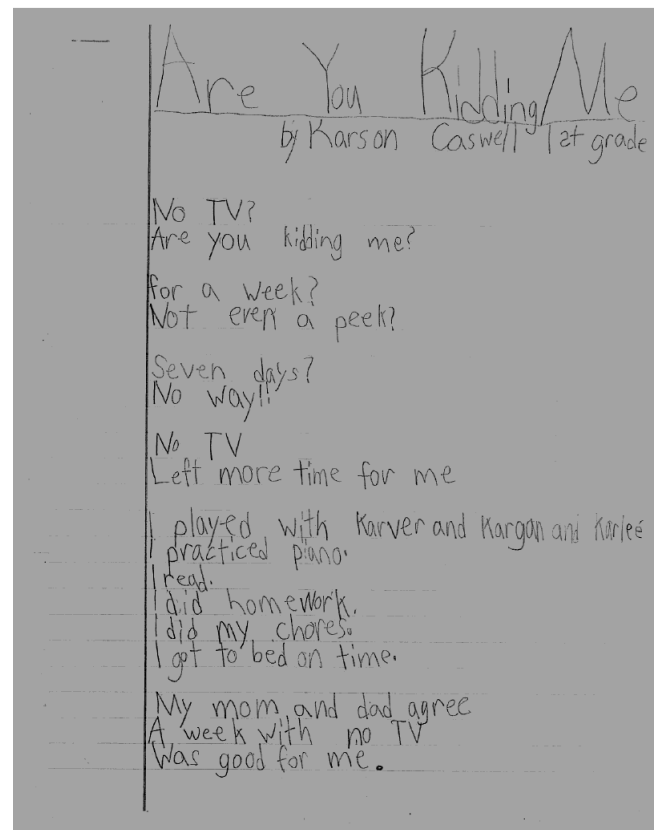 Are You Kidding Me
by Karson Caswell 1st grade
No TV?
Are you kidding me?
for a week?
Not even a peek?
Seven days?
No way!!
No TV
Left more time for me
I played with Karver and Kargan and Karlee
I practiced piano.
I read.
I did homework.
I did my chores.
I got to bed on time.
My mom and dad agree
A week with no TV
Was good for me.